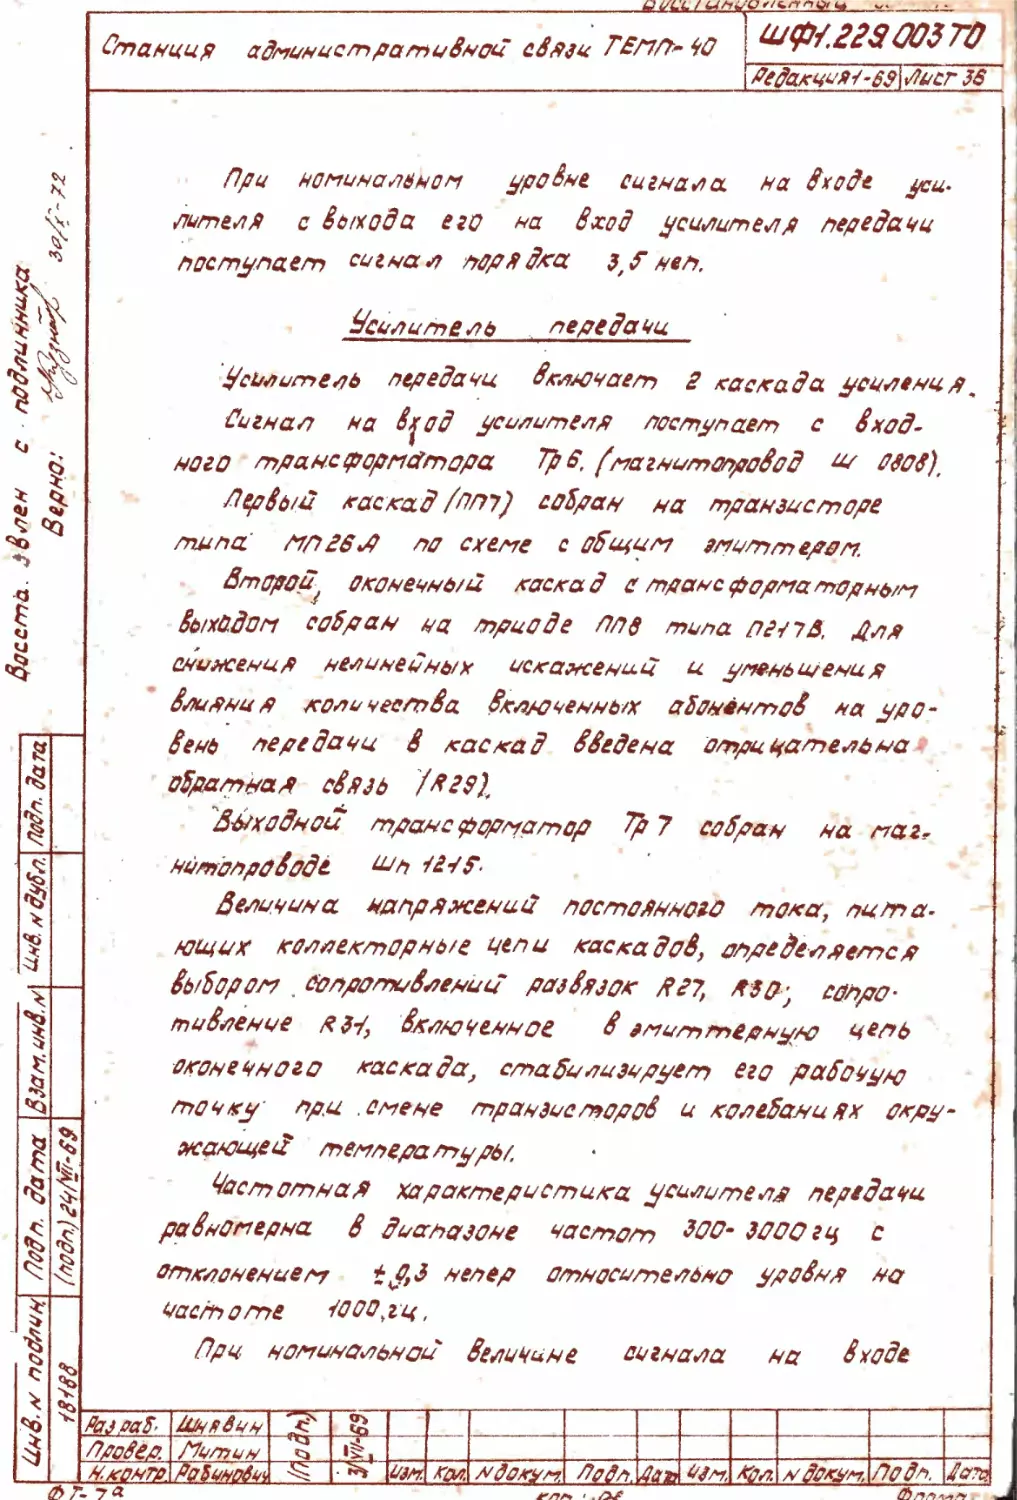 Станция административной связи ТЕМП-40
ШФ1.229.003 ТО
Редакция 1-69 Лист 36
При номинальном уровне сигнала на входе уси-
лителя с выхода его на вход усилителя передачи
поступает сигнал порядка 3,5 неп.
Усилитель передачи
Усилитель передачи включает 2 каскада усиления.
Сигнал на вход усилителя поступает с вход-
ного трансформатора Тр 6. (магнитопровод Ш 0808).
Первый каскад (ПП7) собран на транзисторе
типа МП26А по схеме с общим эмиттером.
Второй, оконечный каскад с трансформаторным
выходом собран на триоде ПП8 типа П217В. Для
снижения нелинейных искажений и уменьшения
влияния количества включенных абонентов на уро-
вень передачи в каскад введена отрицательна
обратная связь (R29).
Выходной трансформатор Тр 7 собран на маг-
нитопроводе Шп 12-15.
Величина напряжений постоянного тока, пита-
ющих коллекторные цепи каскадов, определяется
выбором сопротивлений развязок R27, R30; сопро-
тивление R31, включенное в эмиттерную цепь
оконечного каскада, стабилизирует его рабочую
точку при смене транзисторов и колебаниях окру-
жающей температуры.
Частотная характеристика усилителя передачи
равномерна в диапазоне частот 300-3000 гц с
отклонением ± 0,3 непер относительно уровня на
частоте 1000 гц.
При номинальной величине сигнала на входе
Восстановлен с подлинника
Верно: 30/X-72
Инв. N подлин. Подп. дата Взам. инв. N Инв. N дубл. Подп. дата
18188 (подп.) 24/VII-69
Разраб. Шнявин
Провер. Митин
Н.контр. Рабинович
(подп.) 3/VII-69
Изм. Кол. N докум. Подп. Дата Изм. Кол. N докум. Подп. Дата
ФТ-7а